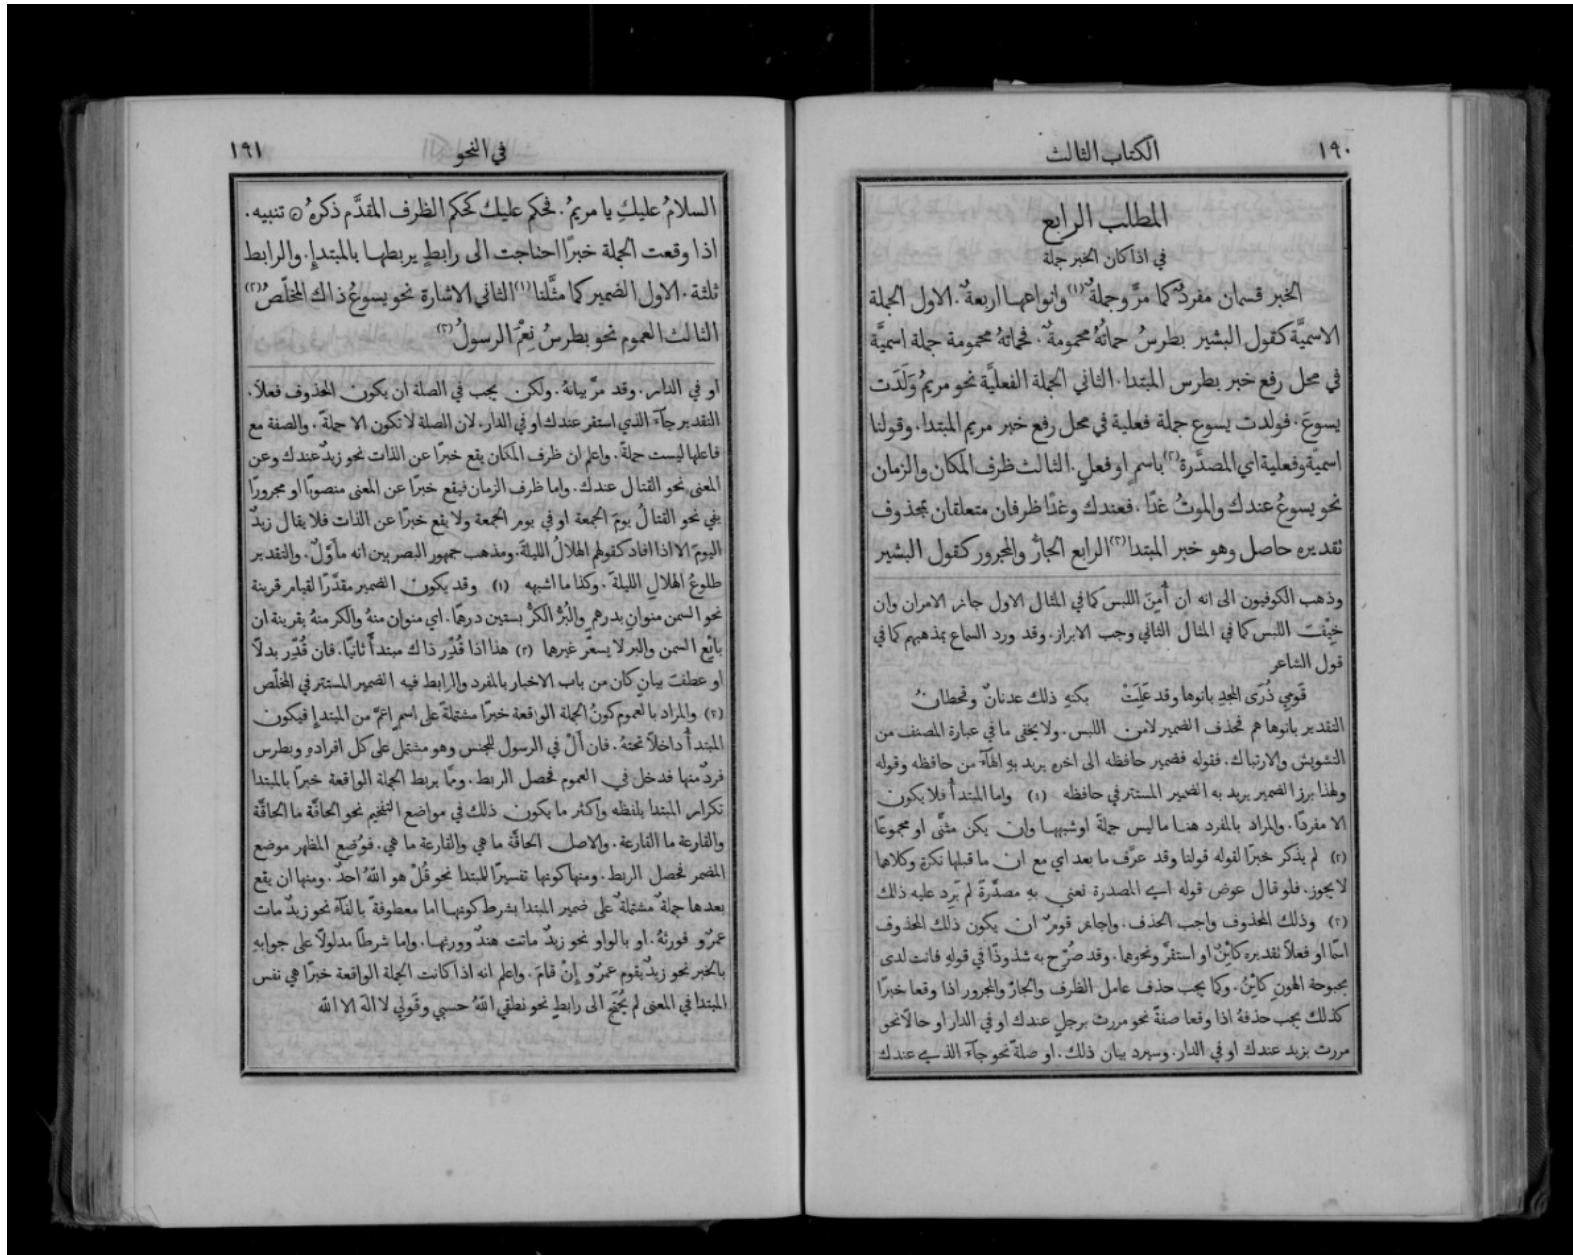 ١٩٠
الكتاب الثالث
المطلب الرابع
في اذا كان الخبر جملة
الخبر قسمان مفردٌ كما مرَّ وجملةٌ (١) وانواعها اربعةٌ. الاول الجملة
الاسميَّة كقول البشير بطرسُ حماتُهُ محمومةٌ. فحماتهُ محمومة جملة اسميَّة
في محل رفع خبر بطرس المبتدا. الثاني الجملة الفعليَّة نحو مريمُ وَلَدَت
يسوعَ. فولدت يسوع جملة فعلية في محل رفع خبر مريم المبتدا. وقولنا
اسميَّة وفعلية اي المصدَّرة (٢) باسمٍ او فعلٍ. الثالث ظرف المكان والزمان
نحو يسوعُ عندك والموتُ غدًا. فعندك وغدًا ظرفان متعلقان بمحذوف
تقديره حاصل وهو خبر المبتدا (٣) الرابع الجارُّ والمجرور كقول البشير
وذهب الكوفيون الى انه ان أُمِنَ اللبس كما في المثال الاول جاز الامران وان
خيْفَت اللبس كما في المثال الثاني وجب الابراز. وقد ورد السماع بمذهبهم كما في
قول الشاعر
قَومِي ذُرَى المجدِ بانوها وقد عَلِمَتْ بكنهِ ذلك عدنانٌ وقحطانُ
التقدير بانوها هم فحذف الضمير لامن اللبس. ولا يخفى ما في عبارة المصنف من
التشويش والارتباك. فقوله فضمير حافظه الى اخرهِ يريد بهِ الهآءَ من حافظه وقوله
ولهذا برز الضمير يريد به الضمير المستتر في حافظه (١) واما المبتدأ فلا يكون
الا مفردًا. والمراد بالمفرد هنا ما ليس جملةً او شبهها وان يكن مثنَّى او مجموعًا
(٢) لم يذكر خبرًا لقوله قولنا وقد عرَّف ما بعد اي مع ان ما قبلها نكرة وكلاهما
لا يجوز. فلو قال عوض قوله اي المصدرة نعني بهِ مصدَّرةً لم يَرِد عليه ذلك
(٣) وذلك المحذوف واجب الحذف. واجاز قومٌ ان يكون ذلك المحذوف
اسمًا او فعلًا تقديره كائِنٌ او استقرَّ ونحوهما. وقد صُرِّح به شذوذًا في قولهِ فانت لدى
بحبوحة الهون كائِنُ. وكما يجب حذف عامل الظرف والجارّ والمجرور اذا وقعا خبرًا
كذلك يجب حذفهُ اذا وقعا صفةً نحو مررت برجلٍ عندك او في الدار او حالًا نحو
مررت بزيد عندك او في الدار. وسيرد بيان ذلك. او صلةً نحو جآءَ الذي عندك
١٩١
في النحو
السلامُ عليكِ يا مريمُ. فحكم عليك كحكم الظرف المقدَّم ذكرهُ ۞ تنبيه.
اذا وقعت الجملة خبرًا احتاجت الى رابطٍ يربطها بالمبتدإِ. والرابط
ثلثة. الاول الضمير كما مثَّلنا (١) الثاني الاشارة نحو يسوعُ ذاك المخلّصُ (٢)
الثالث العموم نحو بطرسُ نِعْمَ الرسولُ (٣)
او في الدار. وقد مرَّ بيانهُ. ولكن يجب في الصلة ان يكون المحذوف فعلًا.
التقدير جآءَ الذي استقر عندك او في الدار. لان الصلة لا تكون الا جملةً. والصفة مع
فاعلها ليست جملةً. واعلم ان ظرف المكان يقع خبرًا عن الذات نحو زيدٌ عندك وعن
المعنى نحو القتال عندك. واما ظرف الزمان فيقع خبرًا عن المعنى منصوبًا او مجرورًا
بفي نحو القتالُ يومَ الجمعة او في يوم الجمعة ولا يقع خبرًا عن الذات فلا يقال زيدٌ
اليومَ الا اذا افاد كقولهم الهلالُ الليلةَ. ومذهب جمهور البصريين انه مأوَّلٌ. والتقدير
طلوعُ الهلالِ الليلةَ. وكذا ما اشبهه (١) وقد يكون الضمير مقدَّرًا لقيام قرينة
نحو السمن منوانِ بدرهمٍ والبُرُّ الكرُّ بستين درهمًا. اي منوان منهُ والكر منهُ بقرينة ان
بائع السمن والبر لا يسعّر غيرها (٢) هذا اذا قُدِّر ذاك مبتدأً ثانيًا. فان قُدِّر بدلًا
او عطفَ بيانٍ كان من باب الاخبار بالمفرد والرابط فيه الضمير المستتر في المخلّص
(٣) والمراد بالعموم كونُ الجملة الواقعة خبرًا مشتملةً على اسمٍ اعمَّ من المبتدإِ فيكون
المبتدأُ داخلًا تحتهُ. فان أَلْ في الرسول للجنس وهو مشتمل على كل افرادهِ وبطرس
فردٌ منها فدخل في العموم فحصل الربط. وممَّا يربط الجملة الواقعة خبرًا بالمبتدا
تكرار المبتدا بلفظه واكثر ما يكون ذلك في مواضع التفخيم نحو الحاقَّة ما الحاقَّة
والقارعة ما القارعة. والاصل الحاقَّة ما هي والقارعة ما هي. فوُضِع المظهر موضع
المضمر فحصل الربط. ومنها كونها تفسيرًا للمبتدا نحو قُلْ هو اللّٰهُ احدٌ. ومنها ان يقع
بعدها جملةٌ مشتملةٌ على ضمير المبتدا بشرط كونها اما معطوفةً بالفآءِ نحو زيدٌ مات
عمرٌو فورثهُ. او بالواو نحو زيدٌ ماتت هندٌ وورثها. واما شرطًا مدلولًا على جوابهِ
بالخبر نحو زيدٌ يقوم عمرٌو إِنْ قامَ. واعلم انه اذا كانت الجملة الواقعة خبرًا هي نفس
المبتدا في المعنى لم يُحتَج الى رابطٍ نحو نطقي اللّٰهُ حسبي وقَولي لا الهَ الا اللّٰه